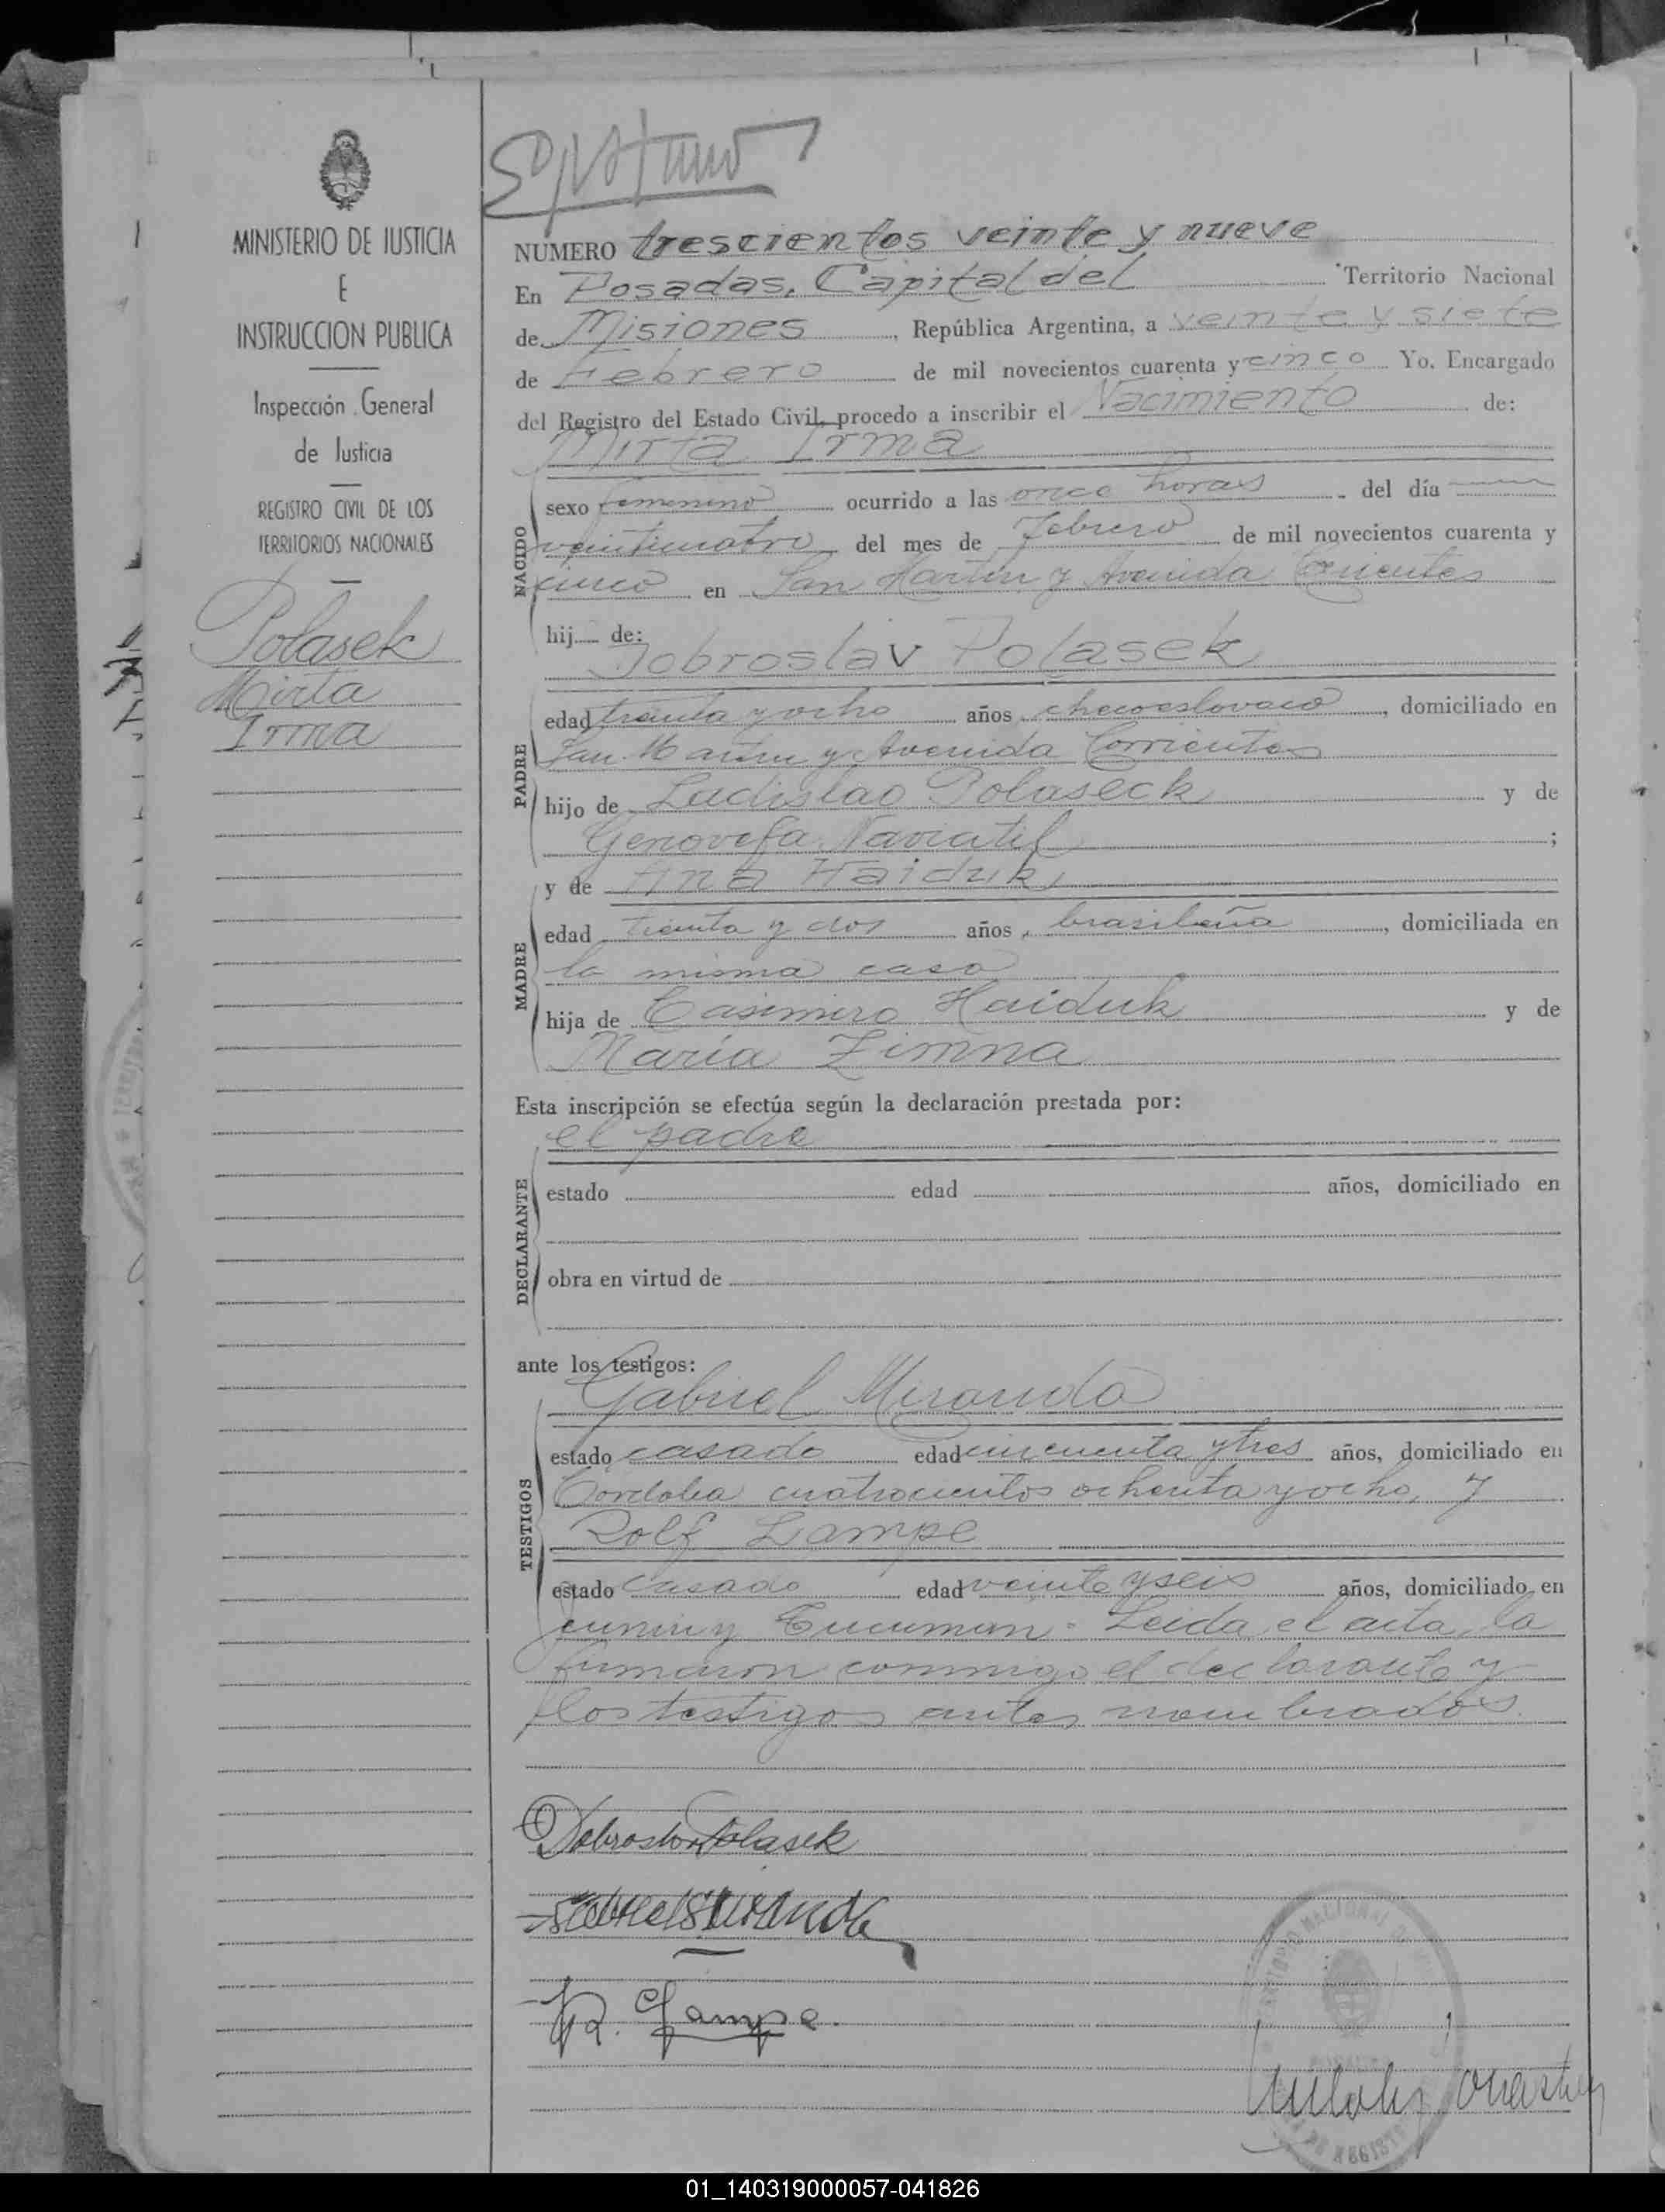 MINISTERIO DE JUSTICIA
E
INSTRUCCION PUBLICA
Inspección General
de Justicia
REGISTRO CIVIL DE LOS
TERRITORIOS NACIONALES
Polasek
Mirta
Irma
NUMERO trescientos veinte y nueve
En Posadas, Capital del Territorio Nacional
de Misiones, República Argentina, a veinte y siete
de Febrero de mil novecientos cuarenta y cinco Yo, Encargado
del Registro del Estado Civil, procedo a inscribir el Nacimiento de:
Mirta Irma
NACIDO
sexo femenino ocurrido a las once horas del día
veinticuatro del mes de Febrero de mil novecientos cuarenta y
cinco en San Martín y Avenida Corrientes
hij de:
Dobroslav Polasek
PADRE
edad treinta y ocho años, checoeslovaco, domiciliado en
San Martín y Avenida Corrientes
hijo de Ladislao Polaseck y de
Genovefa Navratil;
y de Ana Haiduk,
MADRE
edad treinta y dos años, brasileña, domiciliada en
la misma casa
hija de Casimiro Haiduk y de
María Zimna
Esta inscripción se efectúa según la declaración prestada por:
el padre
DECLARANTE
estado edad años, domiciliado en
obra en virtud de
ante los testigos:
Gabriel Miranda
TESTIGOS
estado casado edad cincuenta y tres años, domiciliado en
Córdoba cuatrocientos ochenta y ocho, y
Rolf Lampe
estado casado edad veinte y seis años, domiciliado en
Junin y Tucuman - Leida el acta, la
firmaron conmigo el declarante y
los testigos antes nombrados.
Dobroslav Polasek
Gabriel Miranda
R. Lampe.
01_140319000057-041826